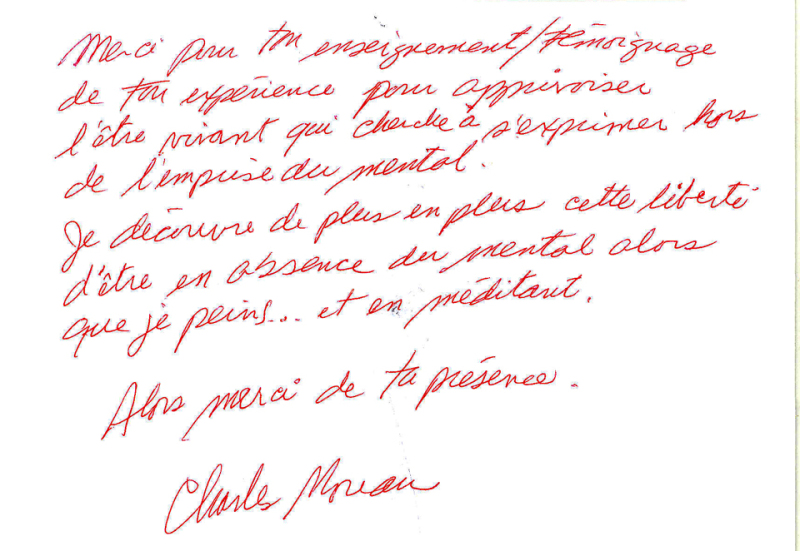 Merci pour ton enseignement/témoignage
de ton expérience pour apprivoiser
l'être vivant qui cherche à s'exprimer hors
de l'emprise du mental.
Je découvre de plus en plus cette liberté
d'être en absence du mental alors
que je peins... et en méditant.
Alors merci de ta présence.
Charles Moreau